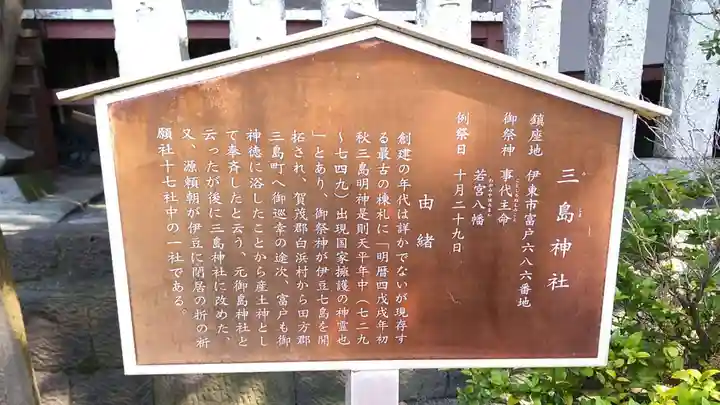 三島神社
鎮座地 伊東市富戸六八六番地
御祭神 事代主命
若宮八幡
例祭日 十月二十九日
由緒
創建の年代は詳かでないが現存す
る最古の棟札に「明暦四戊戌年初
秋三島明神是則天平年中(七二九
〜七四九)出現国家擁護の神霊也
」とあり、御祭神が伊豆七島を開
拓され、賀茂郡白浜村から田方郡
三島町へ御巡幸の途次、富戸も御
神徳に浴したことから産土神とし
て奉斉したと云う、元御島神社と
云ったが後に三島神社に改めた、
又、源頼朝が伊豆に閉居の折の祈
願社十七社中の一社である。